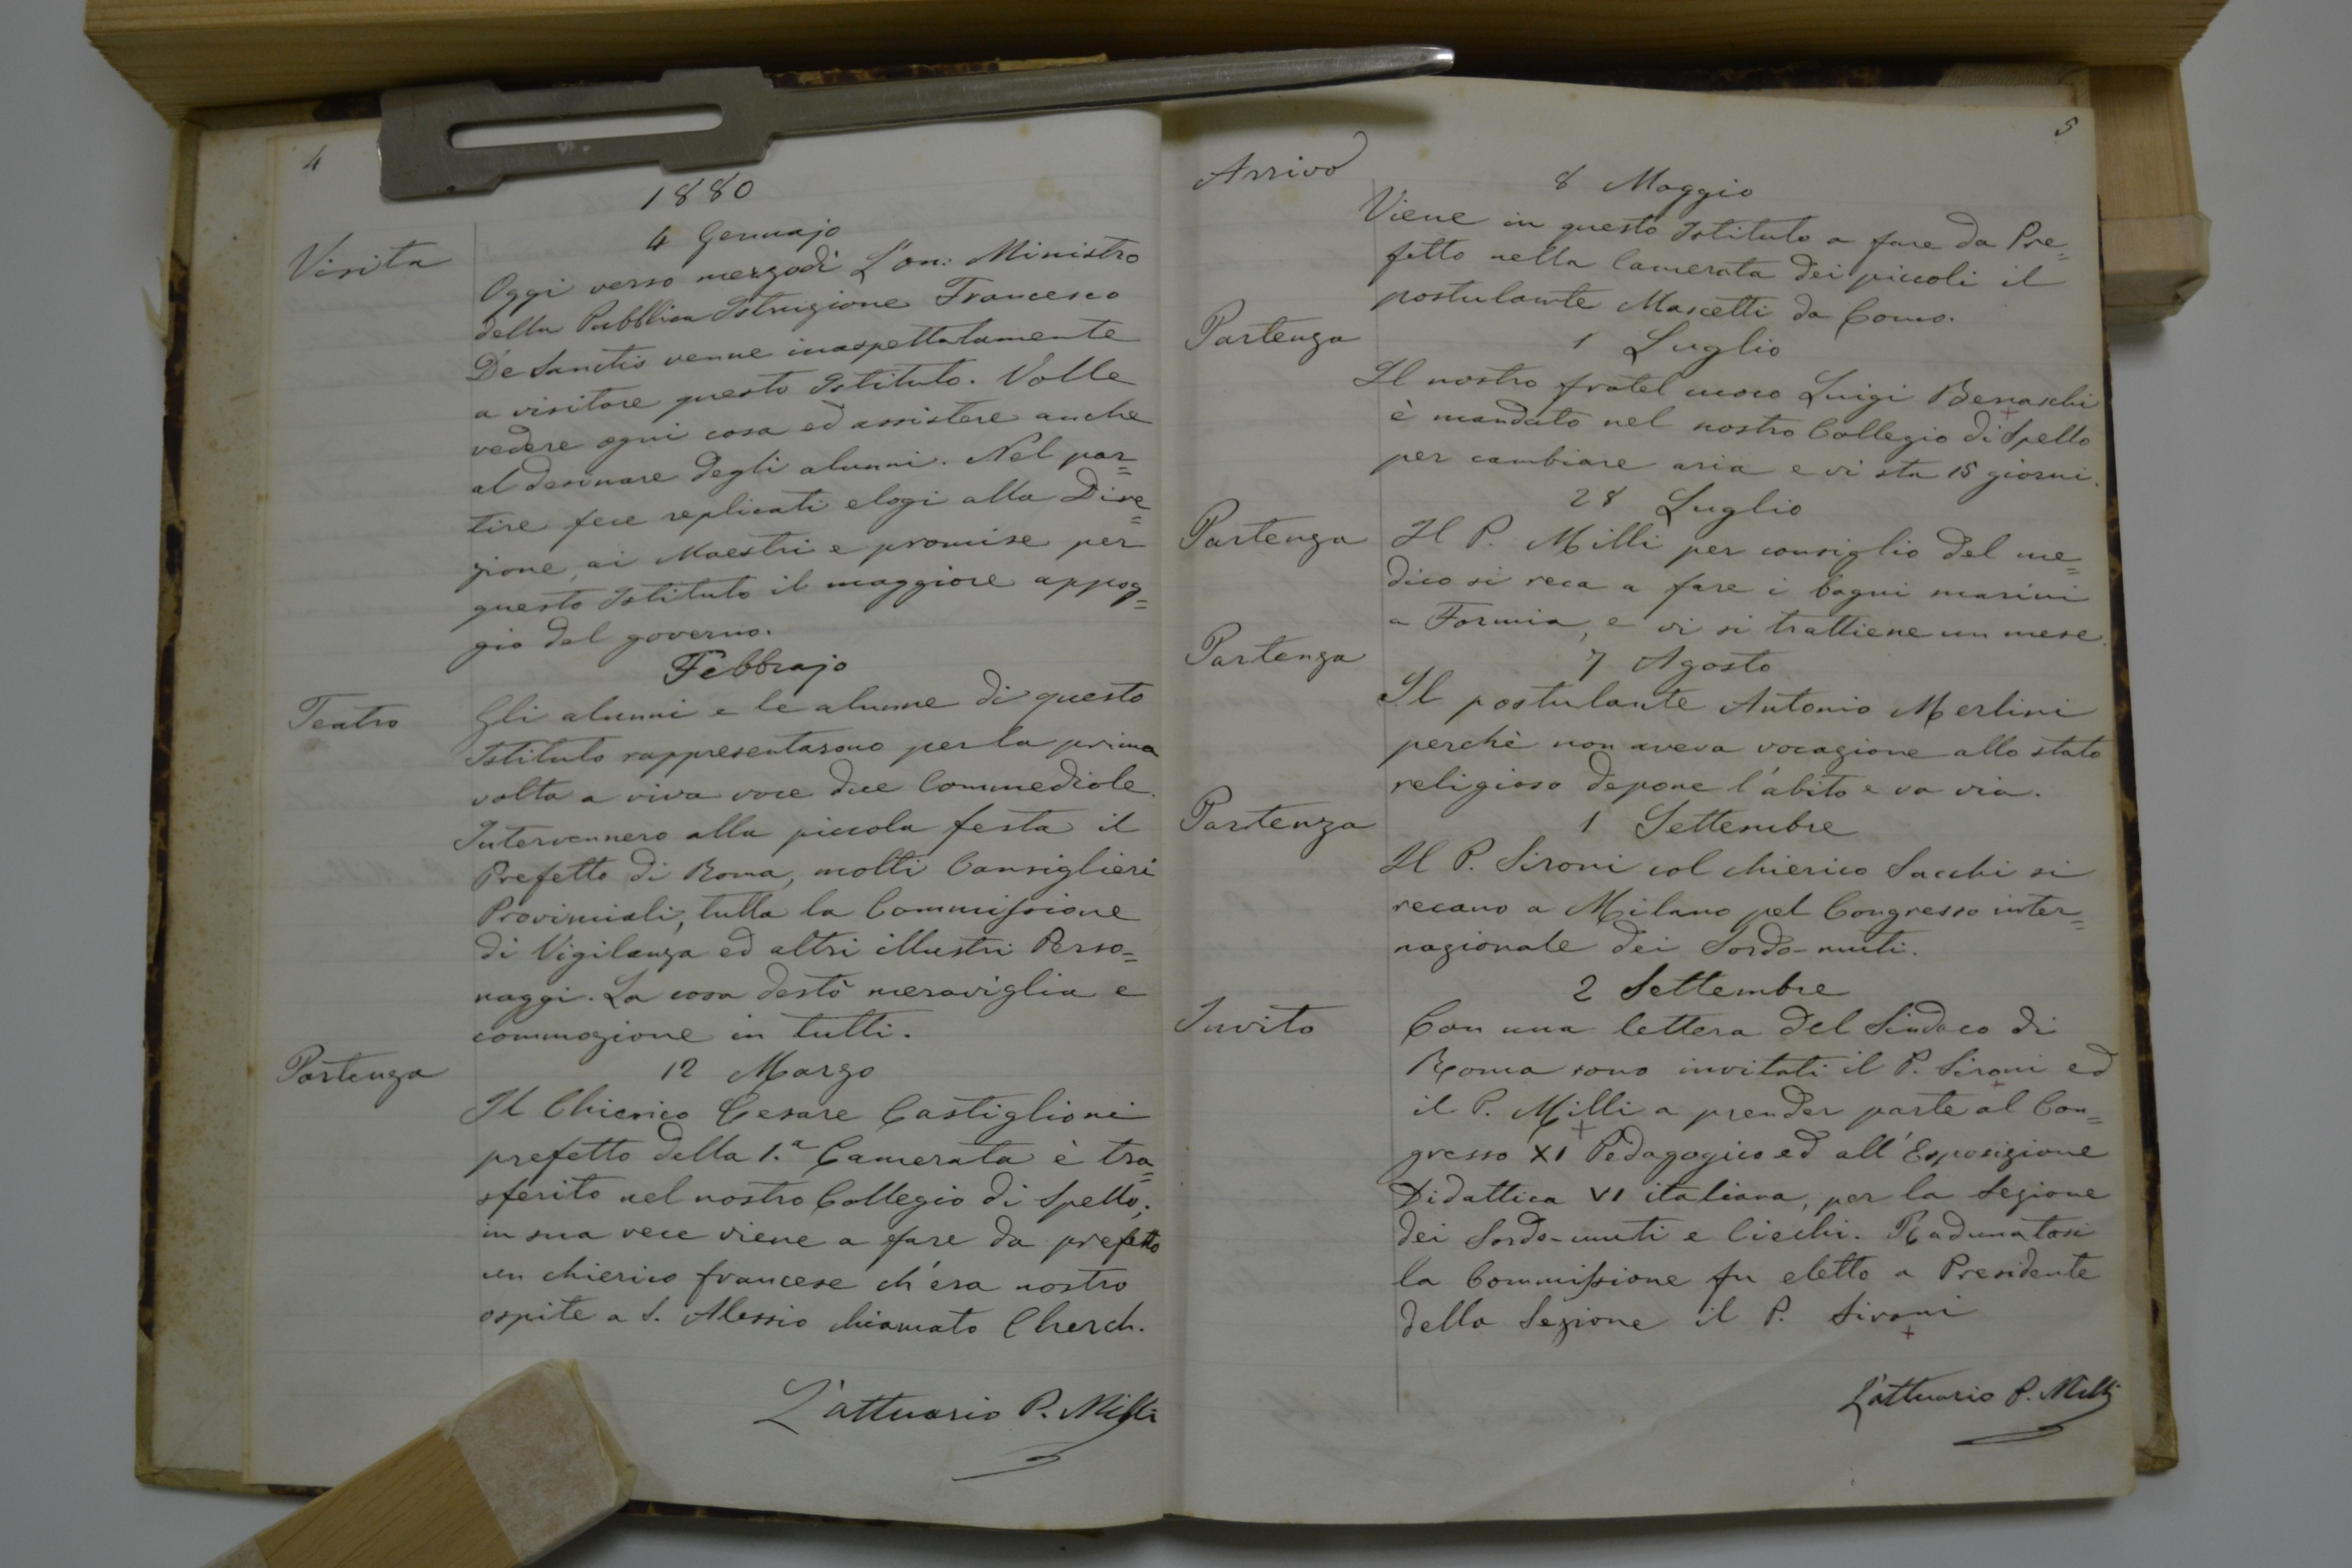 4
1880
4 Gennajo
Visita
Oggi verso mezzodì L'on: Ministro
della Pubblica Istruzione Francesco
De Sanctis venne inaspettatamente
a visitare questo Istituto. Volle
vedere ogni cosa ed assistere anche
al desinare degli alunni. Nel par=
tire fece replicati elogi alla Dire=
zione, ai Maestri e promise per
questo Istituto il maggiore appog=
gio del governo.
Febbrajo
Teatro
Gli alunni e le alunne di questo
Istituto rappresentarono per la prima
volta a viva voce due Commediole.
Intervennero alla piccola festa il
Prefetto di Roma, molti Consiglieri
Provinciali, tutta la Commissione
di Vigilanza ed altri illustri Perso=
naggi. La cosa destò meraviglia e
commozione in tutti.
12 Marzo
Partenza
Il Chierico Cesare Castiglioni
prefetto della 1.a Camerata è tra=
sferito nel nostro Collegio di Spello;
in sua vece viene a fare da prefetto
un chierico francese ch'era nostro
ospite a S. Alessio chiamato Cherch.
L'attuario P. Milli
5
Arrivo
8 Maggio
Viene in questo Istituto a fare da Pre=
fetto nella Camerata dei piccoli il
postulante Mascetti da Como.
Partenza
1 Luglio
Il nostro fratel cuoco Luigi Bernaschi
è mandato nel nostro Collegio di Spello
per cambiare aria e vi sta 15 giorni.
28 Luglio
Partenza
Il P. Milli per consiglio del me=
dico si reca a fare i bagni marini
a Formia, e vi si trattiene un mese.
Partenza
7 Agosto
Il postulante Antonio Merlini
perchè non aveva vocazione allo stato
religioso depone l'abito e va via.
Partenza
1 Settembre
Il P. Sironi col chierico Sacchi si
recano a Milano pel Congresso inter=
nazionale dei Sordo-muti.
2 Settembre
Invito
Con una lettera del Sindaco di
Roma sono invitati il P. Sironi ed
il P. Milli a prender parte al Con=
gresso XI Pedagogico ed all'Esposizione
Didattica VI italiana, per la Sezione
dei Sordo-muti e Ciechi. Radunatosi
la Commissione fu eletto a Presidente
della Sezione il P. Sironi
L'attuario P. Milli